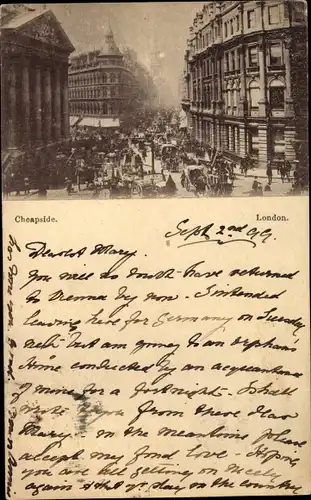 Cheapside.
London.
Sept 2nd 99.
Dearest Mary.
You will no doubt have returned
to Vienna by now. I intended
leaving here for Germany on Tuesday
next but am going to an orphan's
home conducted by an acquaintance
of mine for a fortnight. I shall
write you from there dear
Mary. In the meantime please
accept my fond love. Hoping
you are all getting on nicely
again & that yr stay in the country